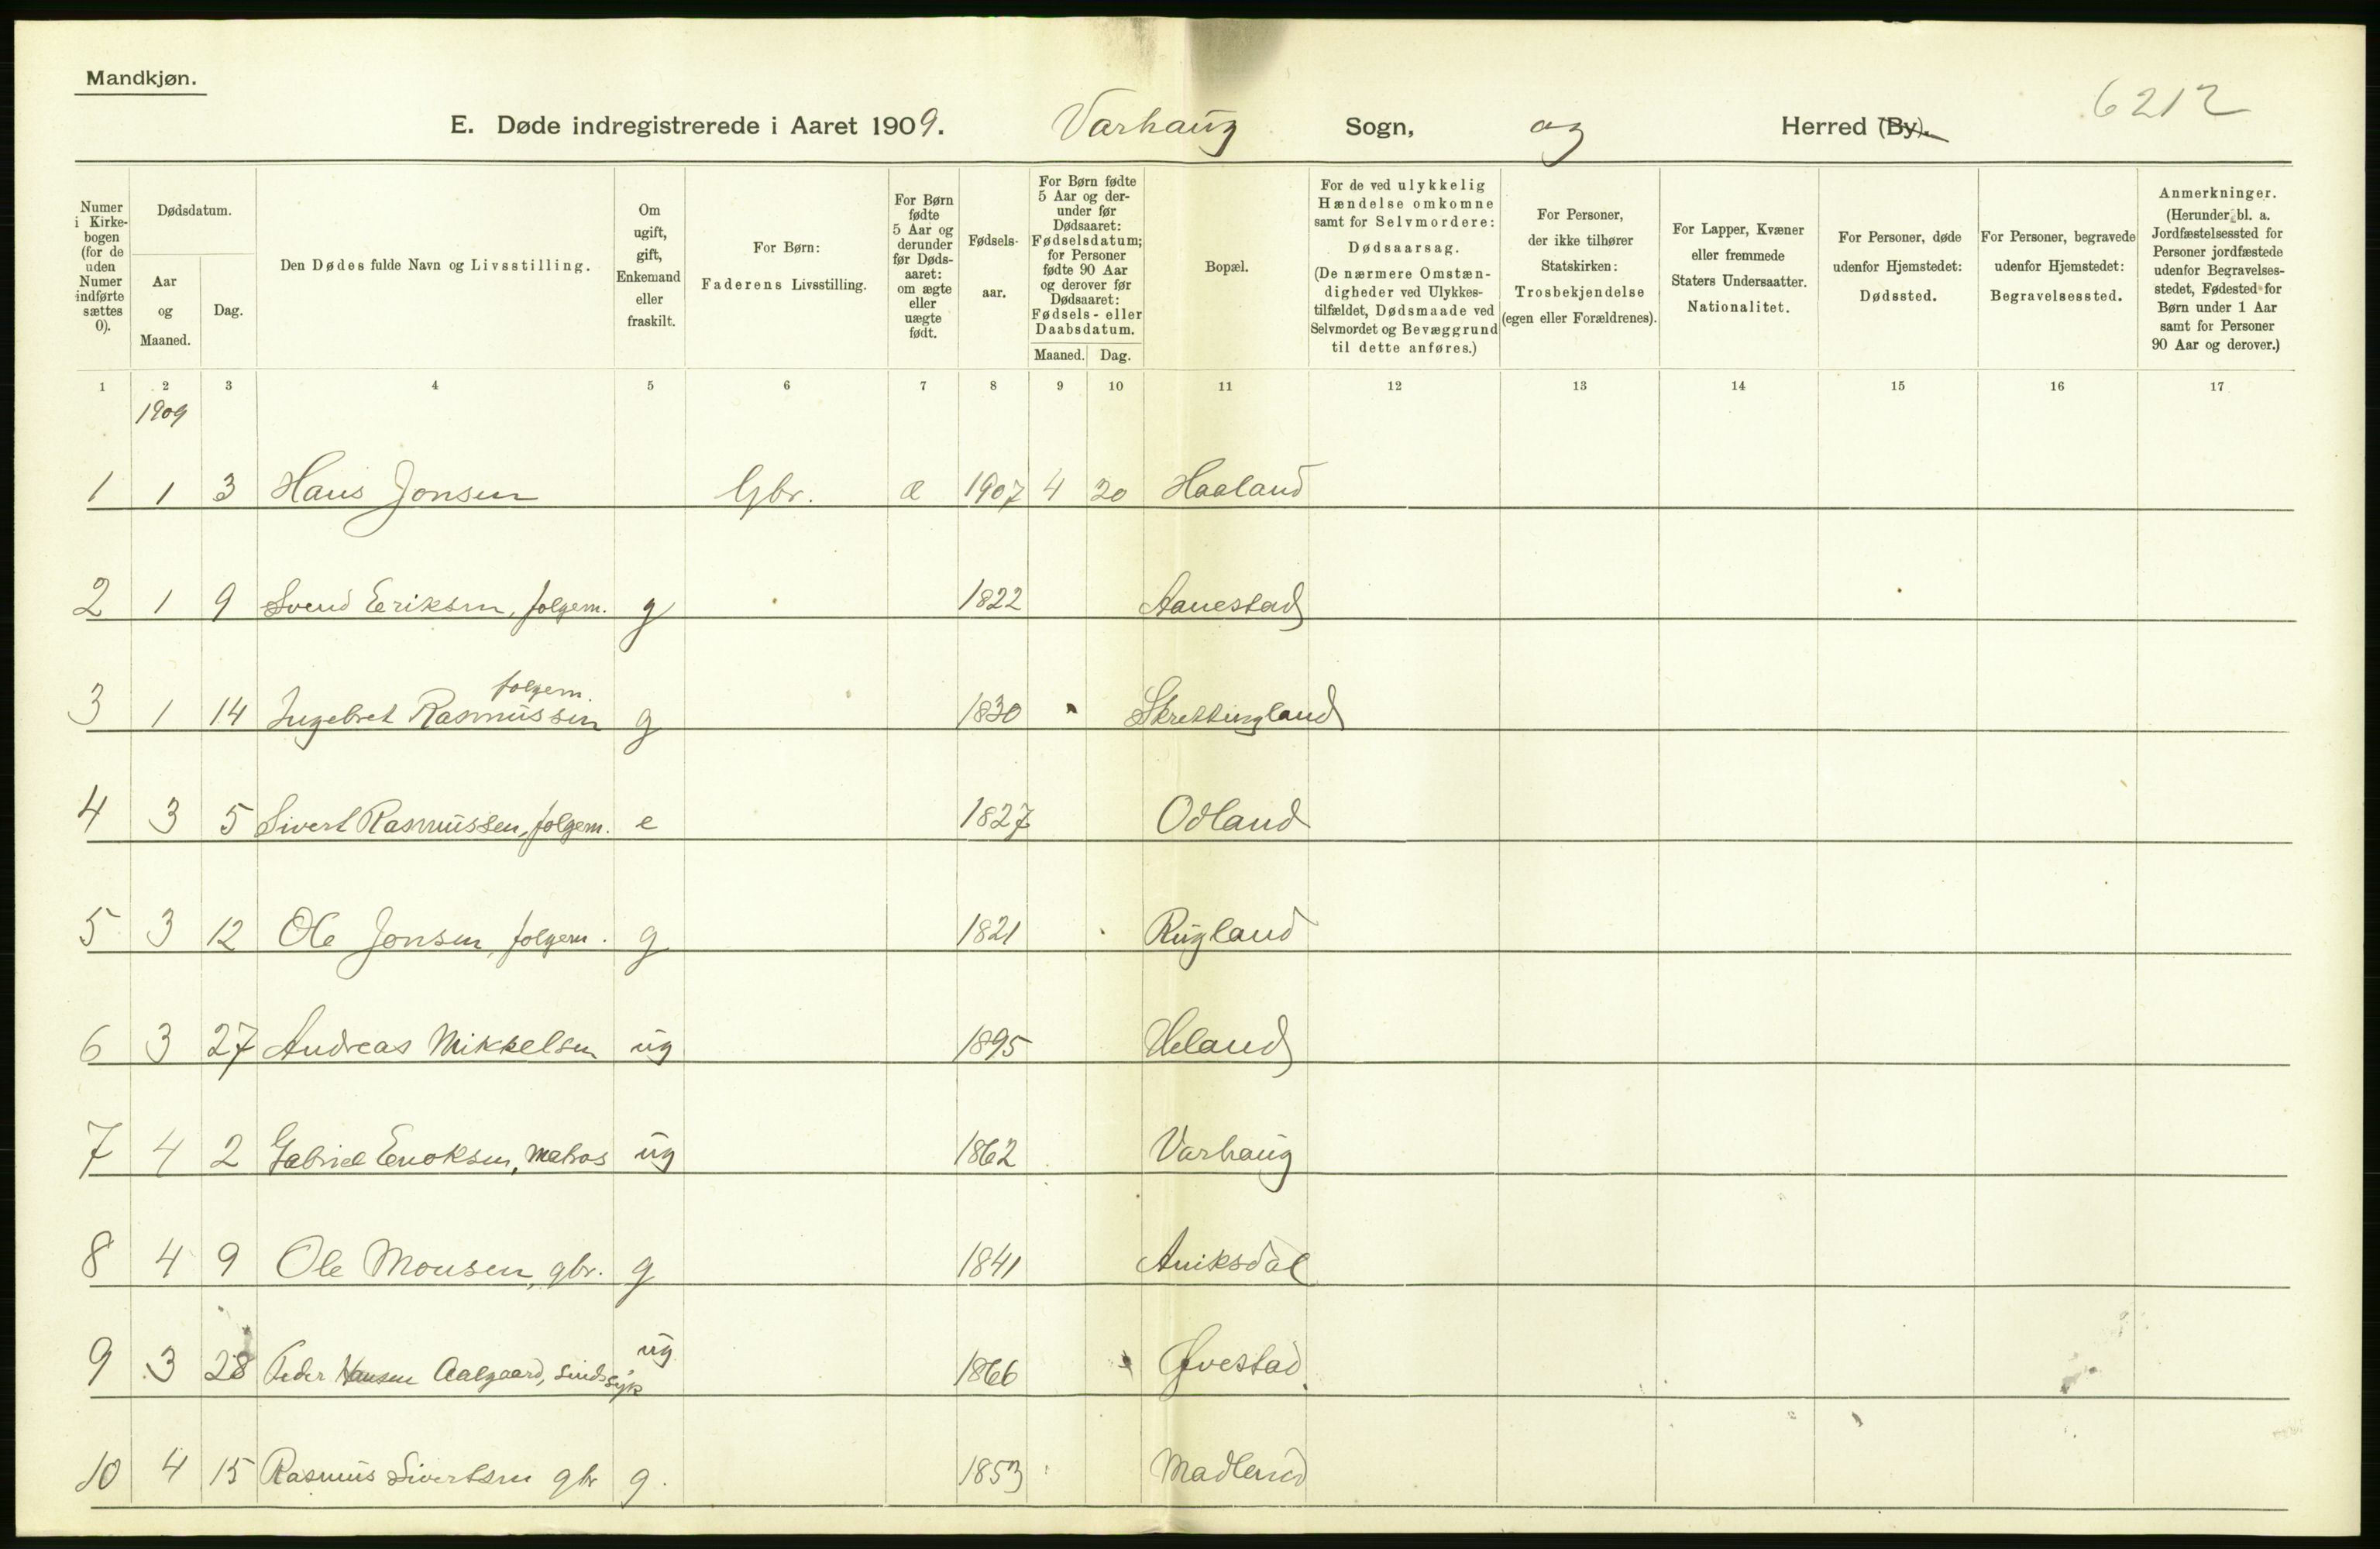 Mandkjøn.
6212
E. Døde indregistrerede i Aaret 1909. Varhaug Sogn, og Herred (By).
Numer i Kirkebogen (for de uden Numer indførte sættes 0).
Dødsdatum.
Aar og Maaned.
Dag.
Den Dødes fulde Navn og Livsstilling.
Om ugift, gift, Enkemand eller fraskilt.
For Børn: Faderens Livsstilling.
For Børn fødte 5 Aar og derunder før Dødsaaret: om ægte eller uægte født.
Fødselsaar.
For Børn fødte 5 Aar og derunder før Dødsaaret: Fødselsdatum; for Personer fødte 90 Aar og derover før Dødsaaret: Fødsels- eller Daabsdatum.
Maaned. Dag.
Bopæl.
For de ved ulykkelig Hændelse omkomne samt for Selvmordere: Dødsaarsag. (De nærmere Omstændigheder ved Ulykkestilfældet, Dødsmaade ved Selvmordet og Bevæggrund til dette anføres.)
For Personer, der ikke tilhører Statskirken: Trosbekjendelse (egen eller Forældrenes).
For Lapper, Kvæner eller fremmede Staters Undersaatter. Nationalitet.
For Personer, døde udenfor Hjemstedet: Dødssted.
For Personer, begravede udenfor Hjemstedet: Begravelsessted.
Anmerkninger. (Herunder bl. a. Jordfæstelsessted for Personer jordfæstede udenfor Begravelsesstedet, Fødested for Børn under 1 Aar samt for Personer 90 Aar og derover.)
1 2 3 4 5 6 7 8 9 10 11 12 13 14 15 16 17
1909
1 1 3 Hans Jonsen Gbr. æ 1907 4 20 Haaland
2 1 9 Svend Eriksen, folgem. g 1822 Aanestad
folgem.
3 1 14 Ingebret Rasmussen g 1830 Skrettingland
4 3 5 Sivert Rasmussen, folgem. e 1827 Odland
5 3 12 Ole Jonsen, folgem. g 1821 Rugland
6 3 27 Andreas Mikkelsen ug 1895 Heland
7 4 2 Gabriel Enoksen, matros ug 1862 Varhaug
8 4 9 Ole Monsen, gbr. g 1841 Aniksdal
9 3 28 Peder Hansen Aalgaard, sindssyk ug 1866
10 4 15 Rasmus Sivertsen gbr g. 1853 Madland